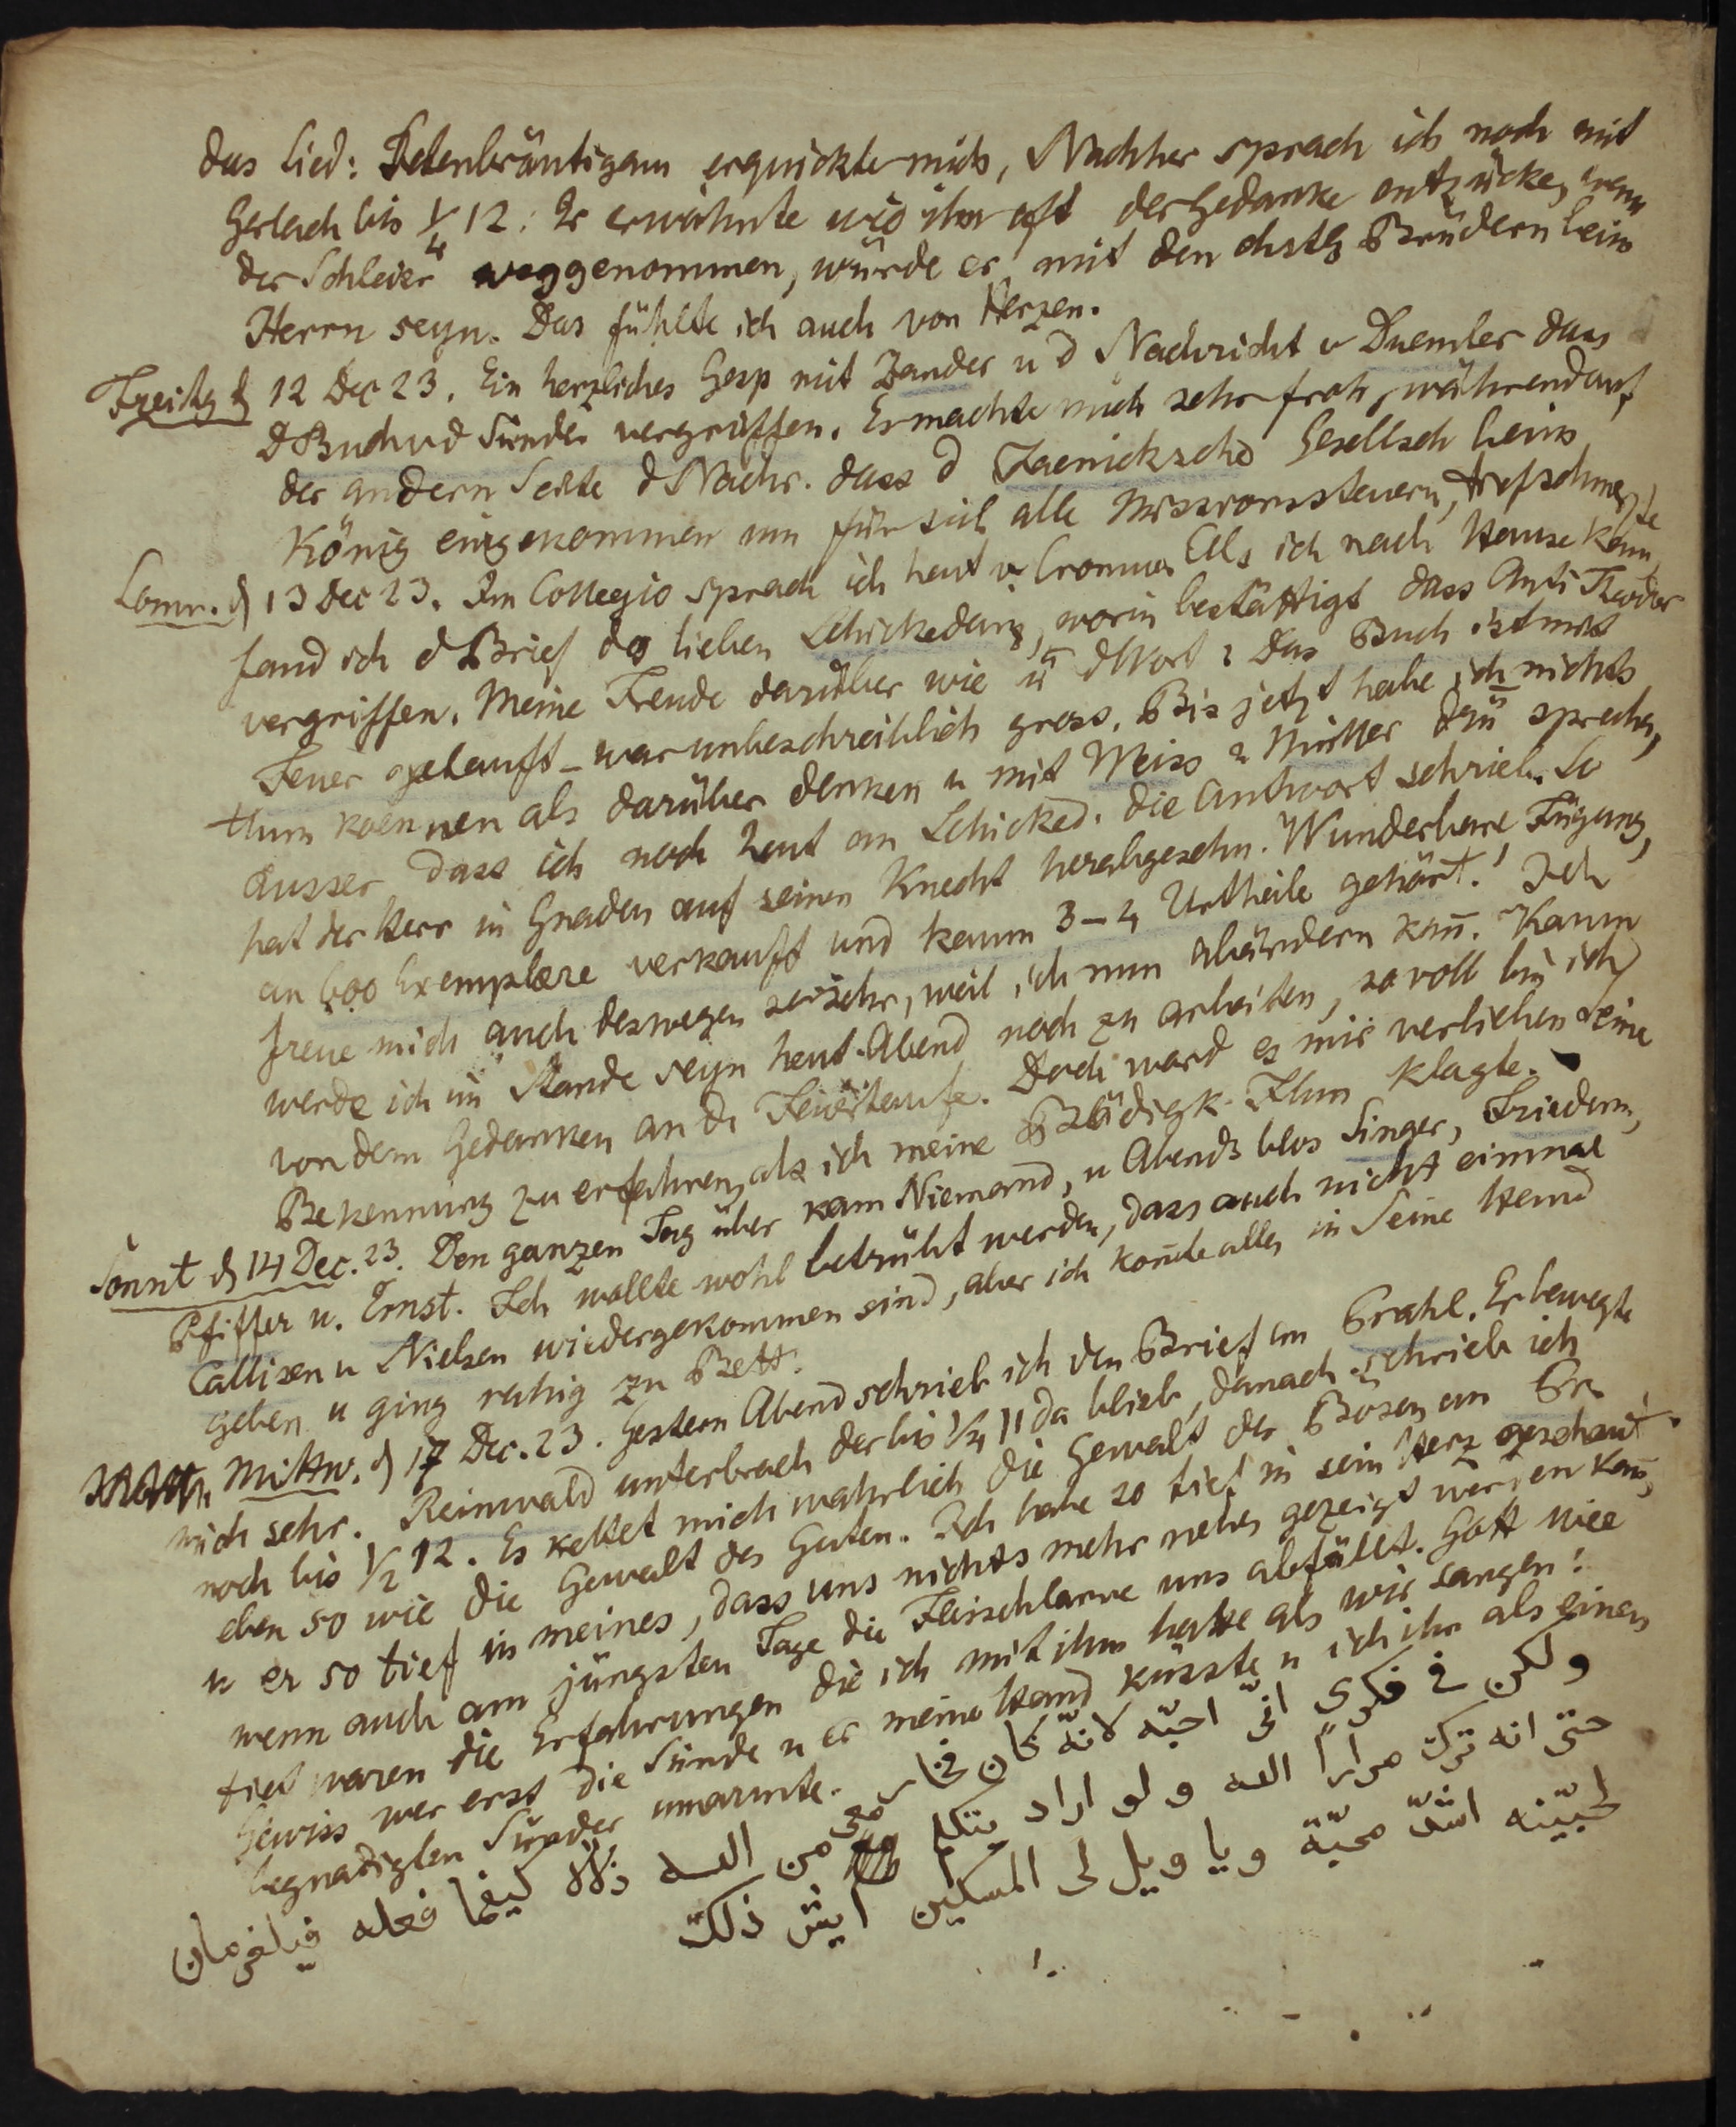 das Lied: Selenbräutigam erquickte mich, Nachher sprach ich noch mit
Gerlach bis ¼ 12. Er erwähnte wie ihn oft der Gedanke entzücke, wenn
der Schleier weggenommen, würde er mit den chstl Brüdern beim
Herrn seyn. Das fühlte ich auch von Herzen.
Freitg d 12 Dec 23. Ein herzliches Gesp mit Zander u d Nachricht v Duemler dass
d Buch v d Sünder vergriffen. Er machte mich sehr froh, während auf
der andern Seite d Nachr. dass d Jaenicksche Gesellsch beim
König eingekommen um für sich alle Missionssteuern, tiefschmerzte
Sonn. d 13 Dec 23. Im Collegio sprach ich heut v. Cromwe Als ich nach Hause kam,
fand ich d Brief des lieben Schickedanz, worin bestättigt dass
vergriffen. Meine Freude darüber wie ü dWort: Das Buch ist mit
Feuer getauft – war unbeschreiblich gross. Bis jetzt habe ich nichts
thun koennen als darüber denken u mit Weiss u Müller dzü sprechen,
ausser dass ich noch heut an Schicked. die Antwort schrieb. So
hat der Herr in Gnaden auf seinen Knecht herabgesehn. Wunderbare Fügung,
an 600 Exemplare verkauft und kaum 3–4 Urtheile gehört! Ich
freue mich auch deswegen so sehr, weil ich nun abändern kan̄. Kaum
werde ich im Stande seyn heut Abend noch zu arbeiten, so voll bin ich
von dem Gedanken an di Feuertaufe. Doch ward es mir verliehen Seine
Bekennung zu erfahren, als ich meine Blödigk. Ihm klagte.
Sonnt d 14 Dec. 23. Den ganzen Tag über kam Niemand, u Abends blos Singer, Friedem,
Pfiffer u. Ernst. Ich wollte wohl betrübt werden, dass auch nicht einmal
Callisen u Nielsen wiedergekommen sind, aber ich kon̄te alles in Seine Hand
geben u ging ruhig zu Bett.
Mittw. d 17 Dec. 23. Gestern Abend schrieb ich den Brief an Grahl. Er bewegte
mich sehr. Reinwald unterbrach der bis ¼ 11 da blieb, danach schrieb ich
noch bis ½ 12. Es kettet mich wahrlich die Gewalt des Bösen an Gr.
eben so wie die Gewalt des Guten. Ich habe so tief in sein Herz geschaut
u er so tief in meines, dass uns nichts mehr neües gezeigt werden kan̄,
wenn auch am jüngsten Tage die Fleischlarve uns abfällt. Gott wie
tief waren die Erfahrungen die ich mit ihm hatte als wir sangen:
Gewiss wer erst die Sünde u er meine Hand küsste u ich ihn als einen
begnadigten Sünder umarmte.
ولكن في فكرى انّى احبّه لانّه كان
حتى انه ترك مراراً الله ولو اراد يتكلم معى من الله كيفما فعله
لحبّيته اشدّ محبّة ويا ويل لى المسكين ايش ذلك